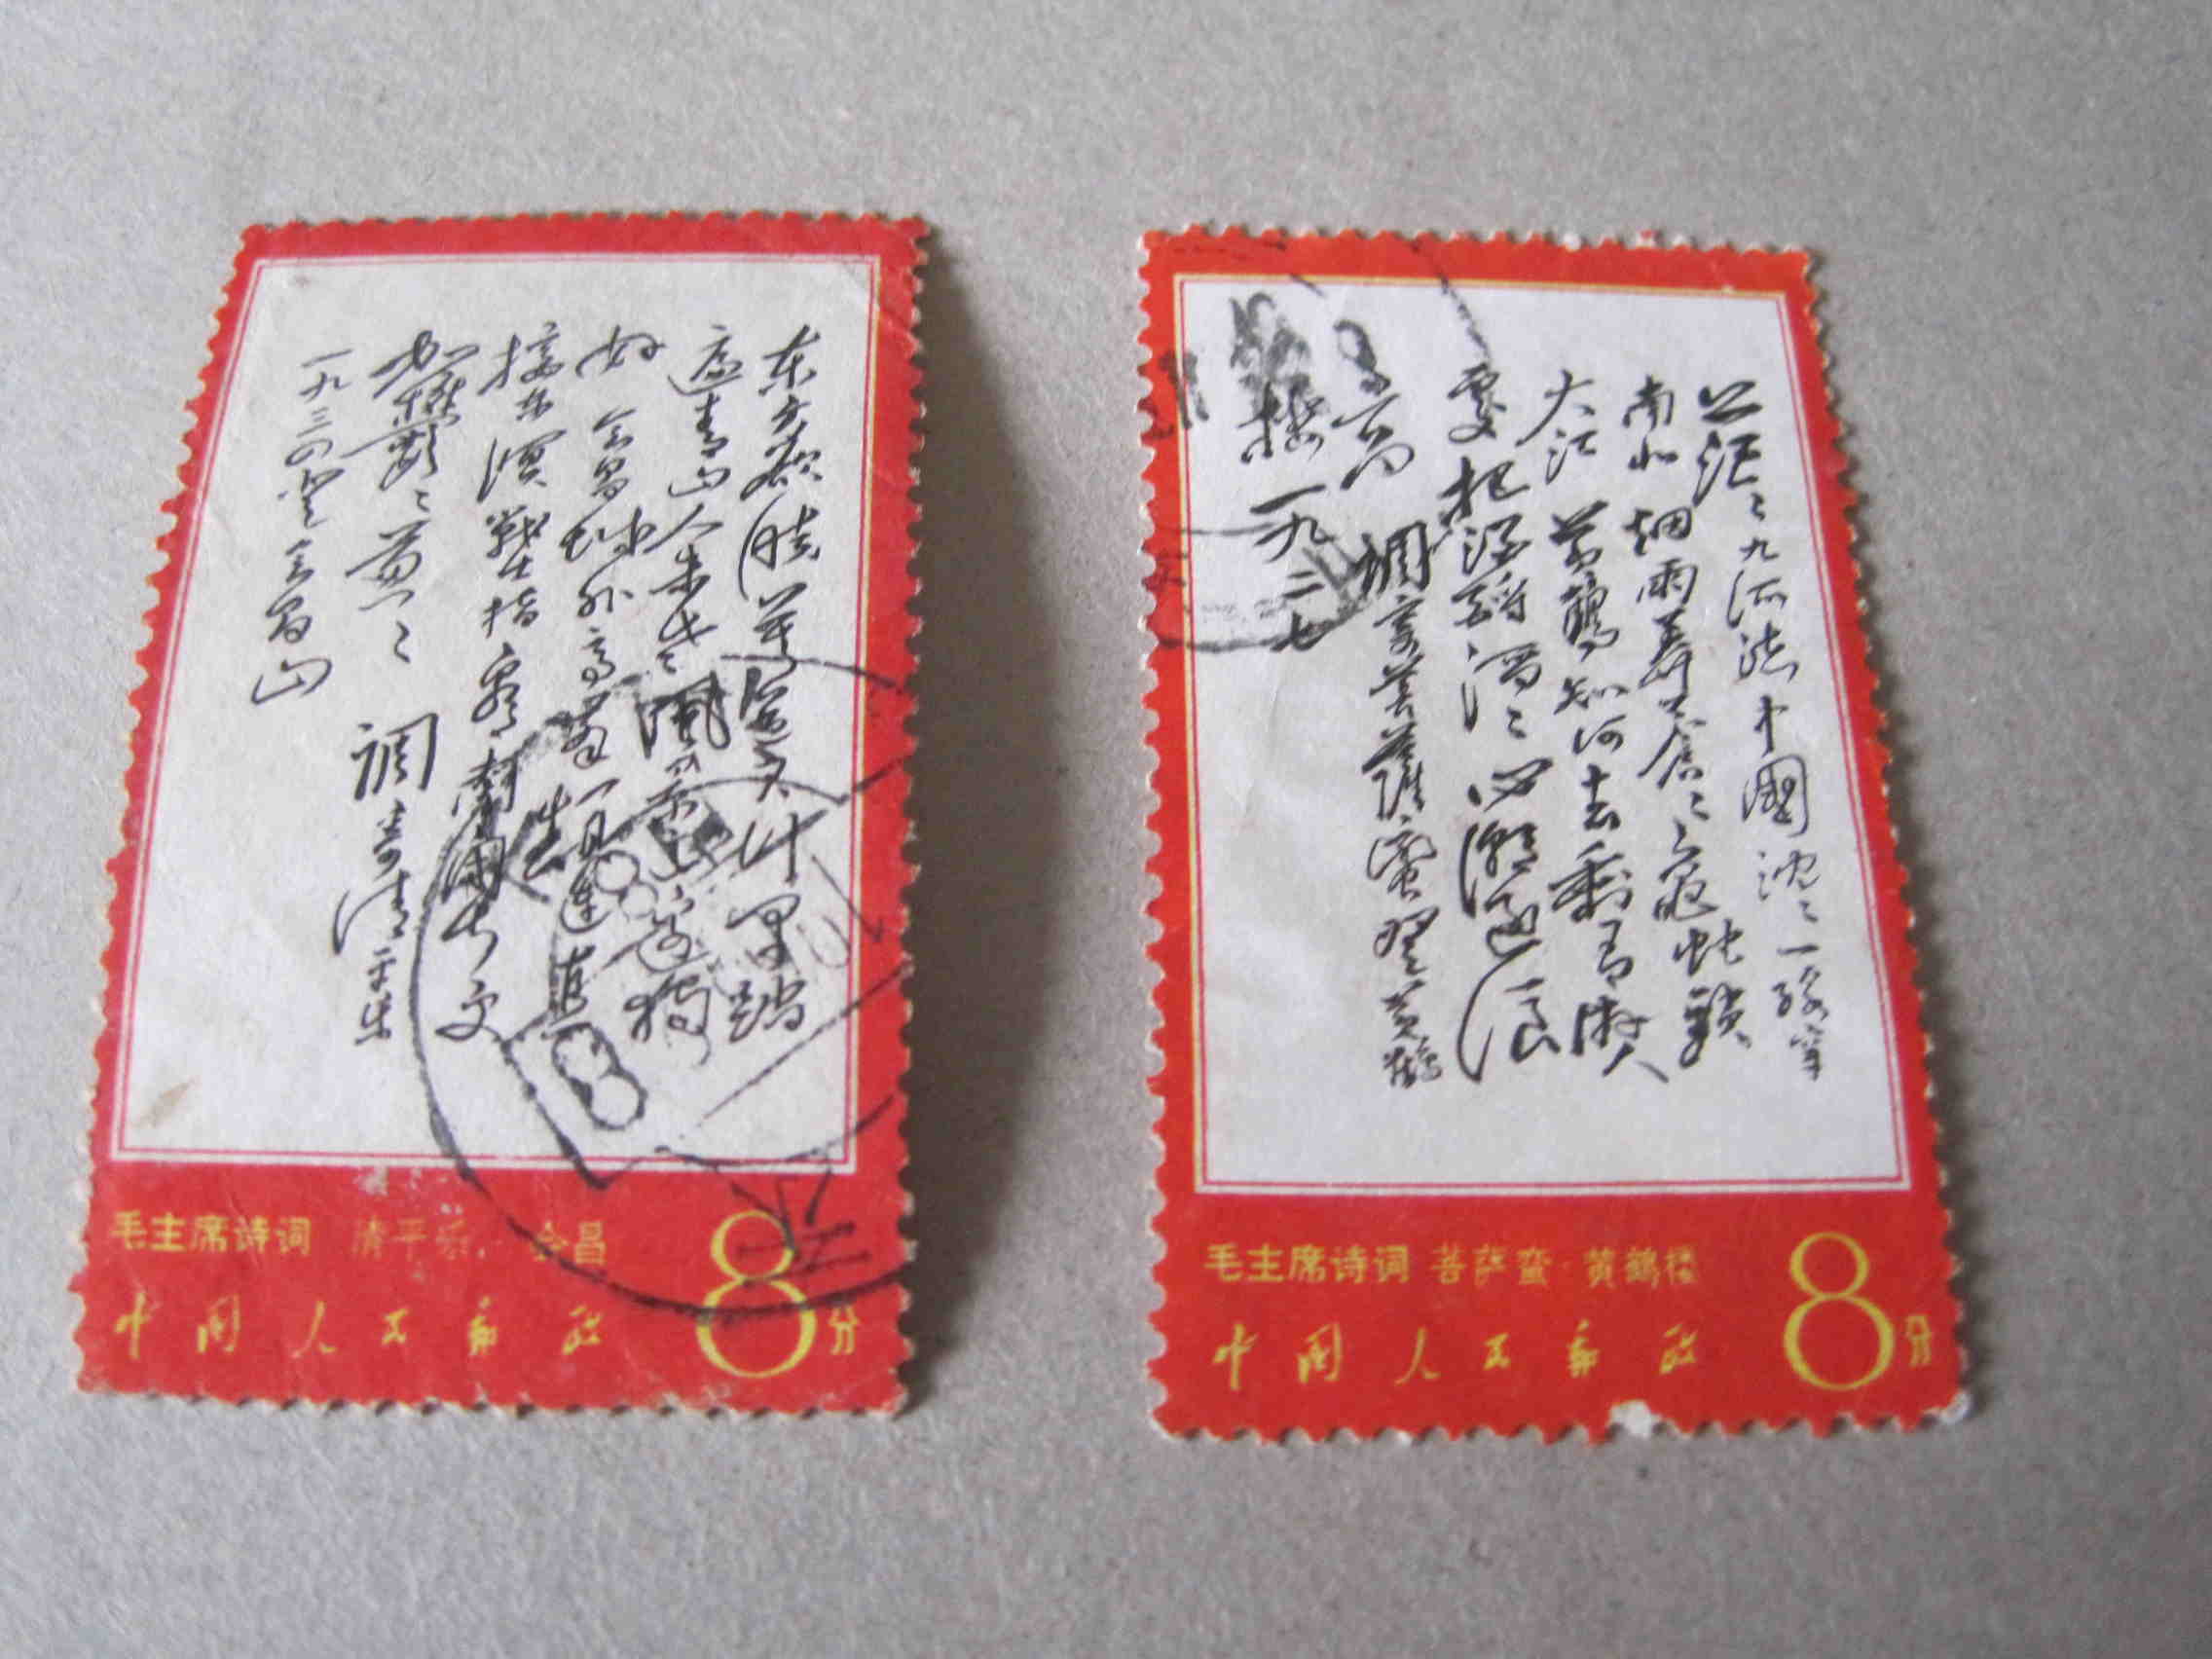 东方欲晓莫道君行早踏
遍青山人未老風景这边独
好 会昌城外高峯颠连直
接东溟戰士指看南粤更
加鬱〻葱〻
调寄清平乐
一九三四 登会昌山
毛主席诗词 清平乐·会昌
中国人民邮政 8分
茫〻九派流中國沉〻一线穿
南北 烟雨莽苍〻龟蛇鎖
大江 黄鶴知何去剩有游人
處 把酒酹滔〻心潮逐浪
高 调寄菩萨蛮 登黄鹤
楼 一九二七
毛主席诗词 菩萨蛮·黄鹤楼
中国人民邮政 8分